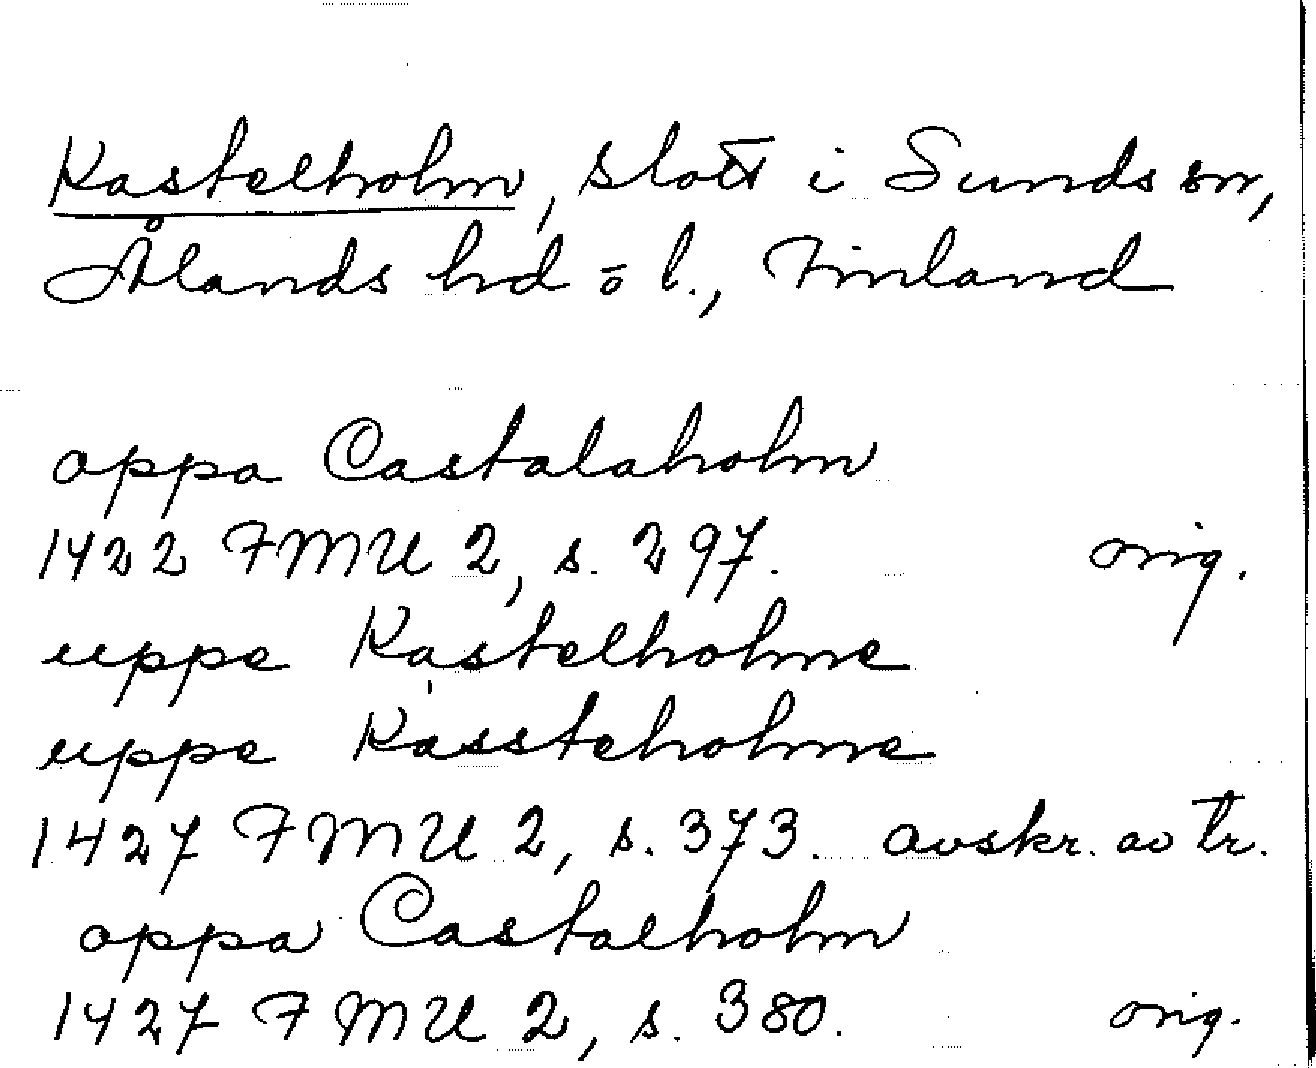 Kastelholm, slott i Sunds sn,
Ålands hd o l., Finland
oppa Castalaholm
1422 FMU 2, s. 297. orig.
uppe Kastelholme
uppe Kassteholme
1427 FMU 2, s. 373. avskr. av tr.
oppa Castalholm
1427 FMU 2, s. 380. orig.